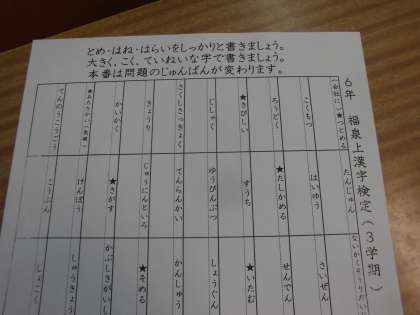 とめ・はね・はらいをしっかりと書きましょう。
大きく、こく、ていねいな字で書きましょう。
本番は問題のじゅんばんが変わります。
6年 福泉上漢字検定(3学期)
(会社に)★つとめる
こくもつ
ろうどく
★きびしい
じしゃく
さくしさっきょく
きょうり
かいかく
てんのうこうごう
たんじゅん
はいゆう
★たしかめる
すうち
ゆうびんぶつ
てんらんかい
じゅうにんといろ
★さがす
けんぽう
こうふん
ないかくそうりだい
さいぜん
せんでん
★いたむ
しょうぐん
かんしゅう
★そめる
かぶしきがいし
しゅうきょう
しょこく